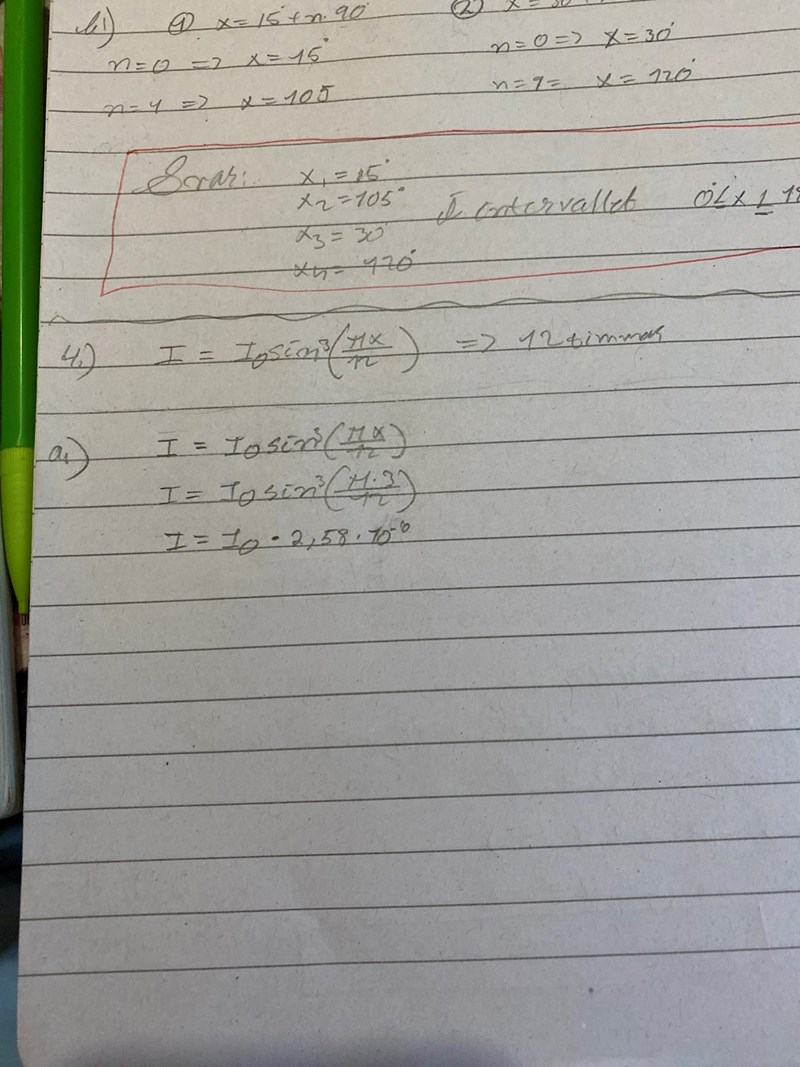 b1) ① x = 15° + n · 90° ② x = 30
n = 0 => x = 15° n = 0 => x = 30°
n = 1 => x = 105 n = 1 = x = 120°
Svar: x₁ = 15°
x₂ = 105° I intervallet 0° ≤ x ≤ 18
x₃ = 30°
x₄ = 120°
4.) I = I₀ sin³(πx/12) => 12 timmar
a.) I = I₀ sin³(πx/12)
I = I₀ sin³(π·3/12)
I = I₀ · 2,58 · 10⁻⁶